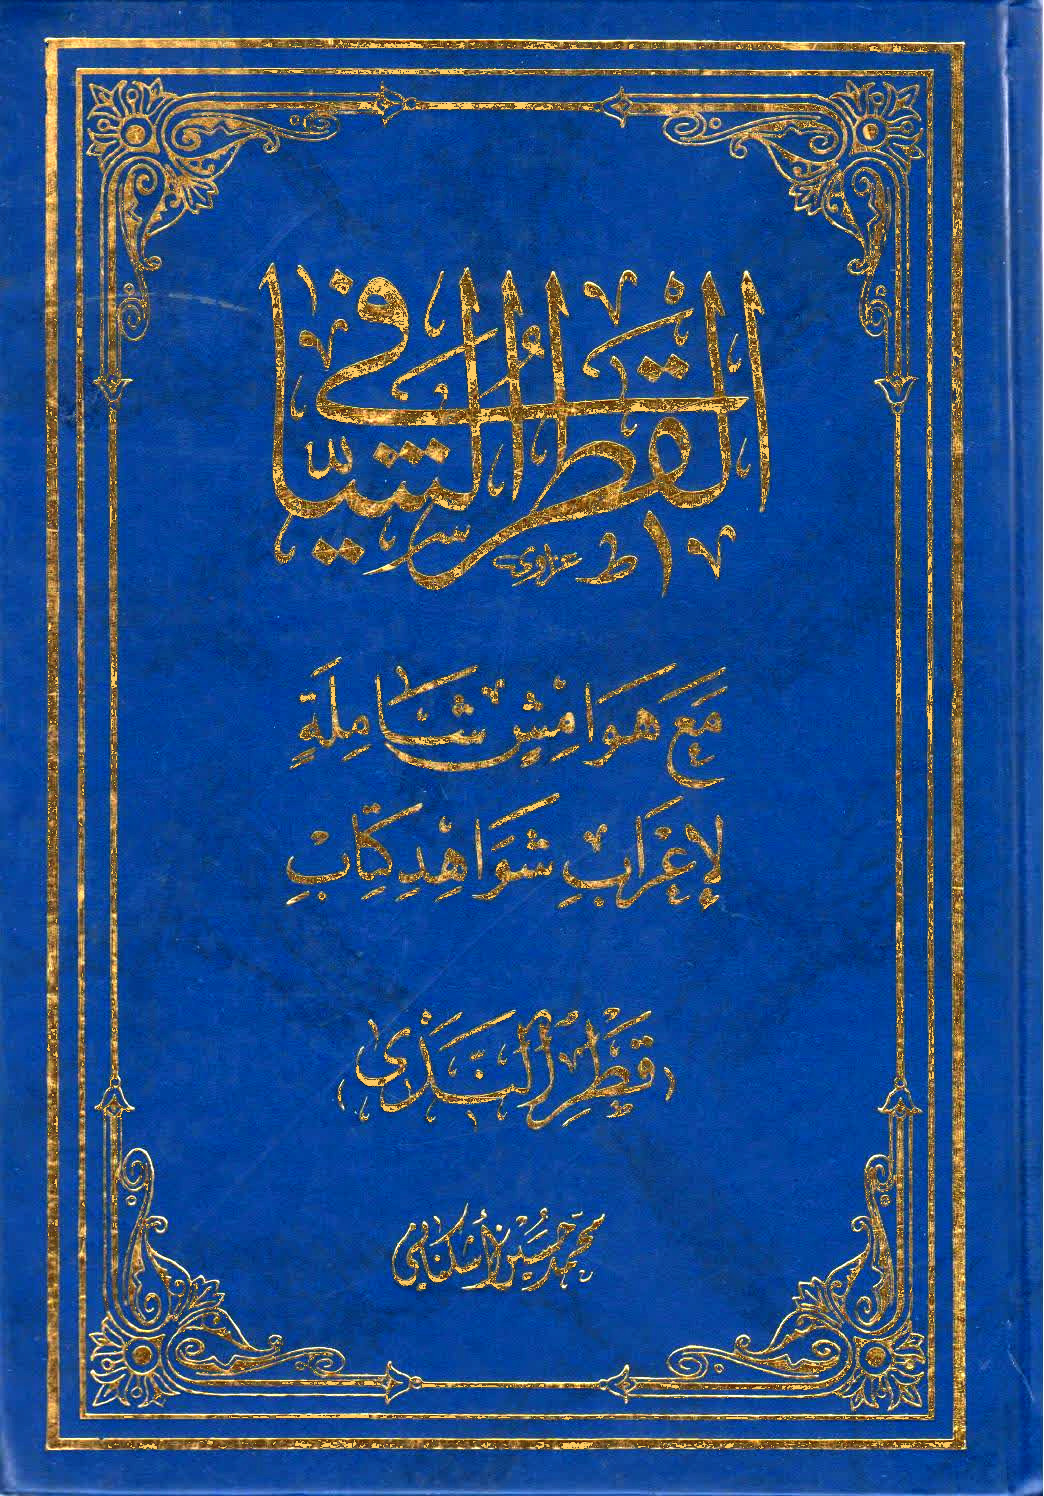 القَطْرُ الشَّافِي
ط عزاوي
مَعَ هَوَامِشٍ شَامِلَةٍ
لِإِعْرَابِ شَوَاهِدِ كِتَابِ
(قَطْرِ النَّدَى)
محمد حسين الأشكناني